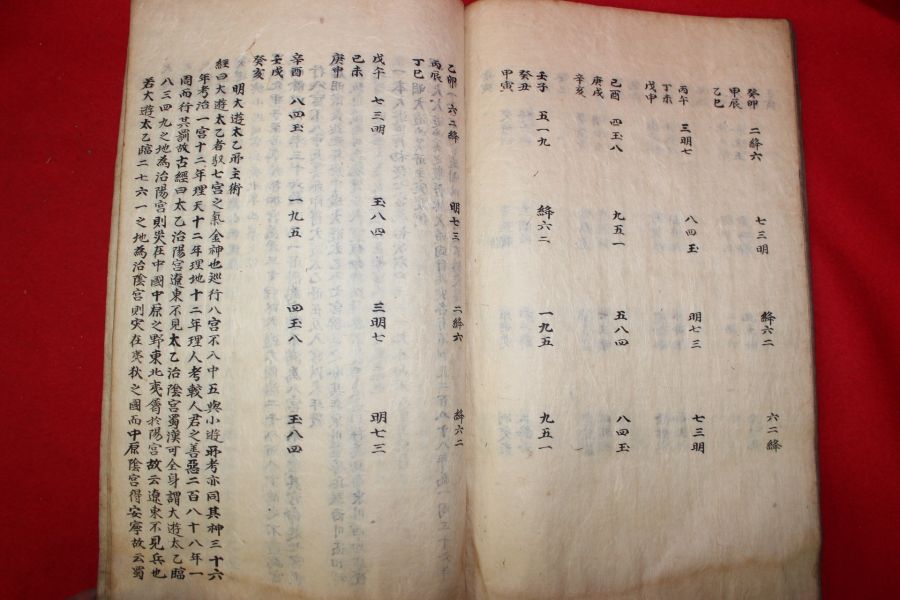 癸卯 二絳六 七三明 絳六二 六二絳
甲辰
乙巳
丙午 三明七 八四玉 明七三 七三明
丁未
戊申
己酉 四玉八 九五一 五八四 八四玉
庚戌
辛亥
壬子 五一九 絳六二 一九五 九五一
癸丑
甲寅
乙卯 六二絳 明七三 二絳六 絳六二
丙辰
丁巳
戊午 七三明 玉八四 三明七 明七三
己未
庚申
辛酉 八四玉 一九五一 四玉八 玉八四
壬戌
癸亥
明大遊太乙所主術
經曰大遊太乙者馭七宮之氣金神也巡行八宮不入中五與小遊所考亦同其神三十六
年考治一宮十二年理天十二年理地十二年理人考較人君之善惡二百八十八年一
周而行其罰故古經曰太乙治陽宮遼東不見太乙治陰宮蜀漢可全身謂大遊太乙臨
八三四九之地為治陽宮則災在中國中原之野東北夷屬於陽宮故云遼東不見兵也
若大遊太乙臨二七六一之地為治陰宮則災在夷狄之國而中原陰宮得安寧故云蜀